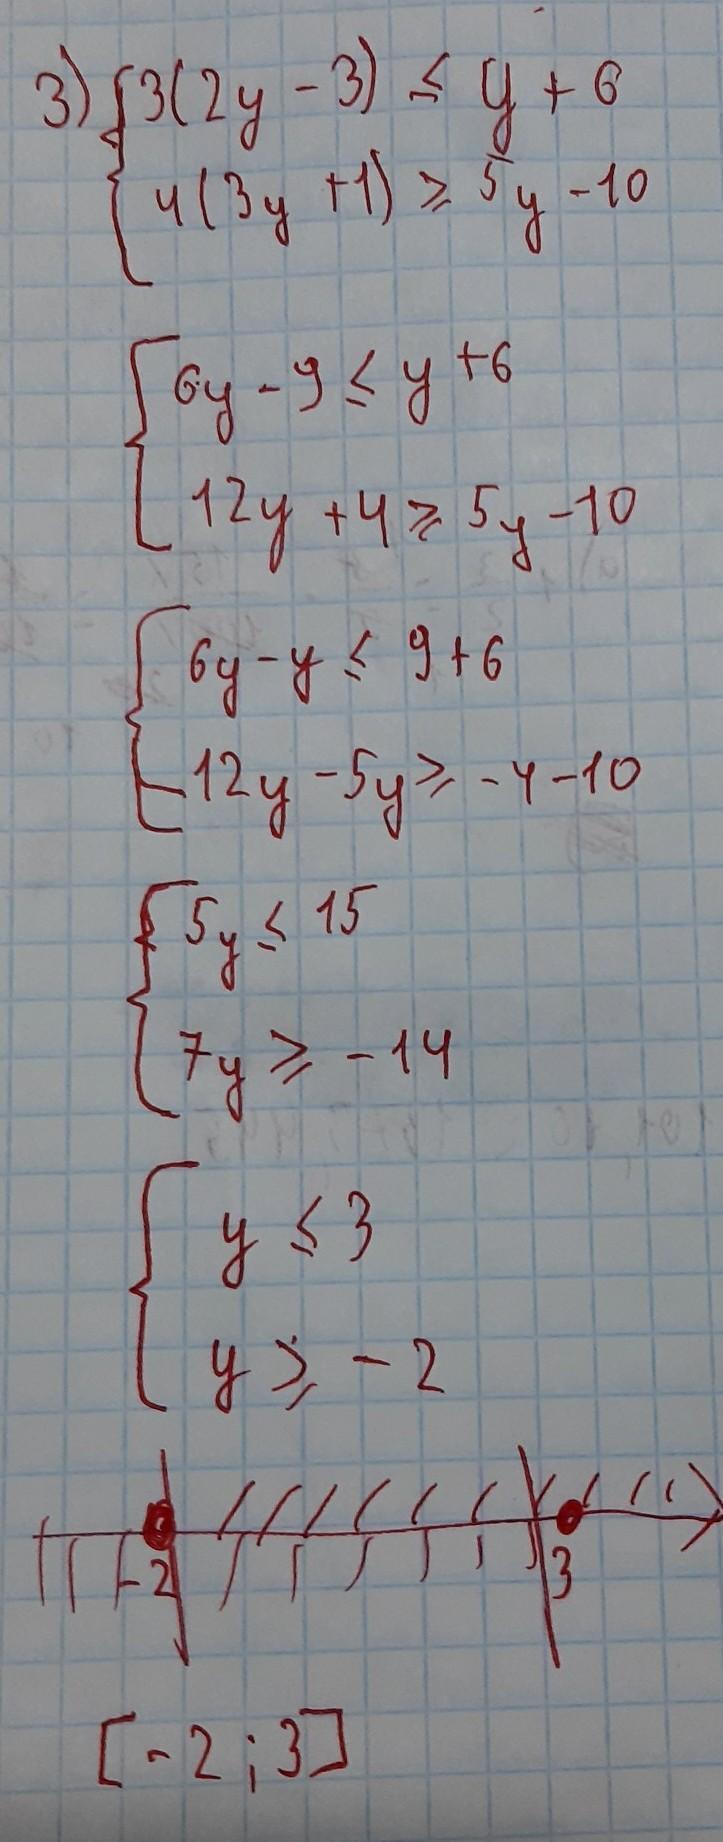 3) { 3(2y - 3) ≤ y + 6
4(3y +1) ≥ 5y - 10
{ 6y - 9 ≤ y + 6
12y + 4 ≥ 5y - 10
{ 6y - y ≤ 9 + 6
12y - 5y ≥ -4 - 10
{ 5y ≤ 15
7y ≥ -14
{ y ≤ 3
y ≥ -2
-2 3
[-2 ; 3]